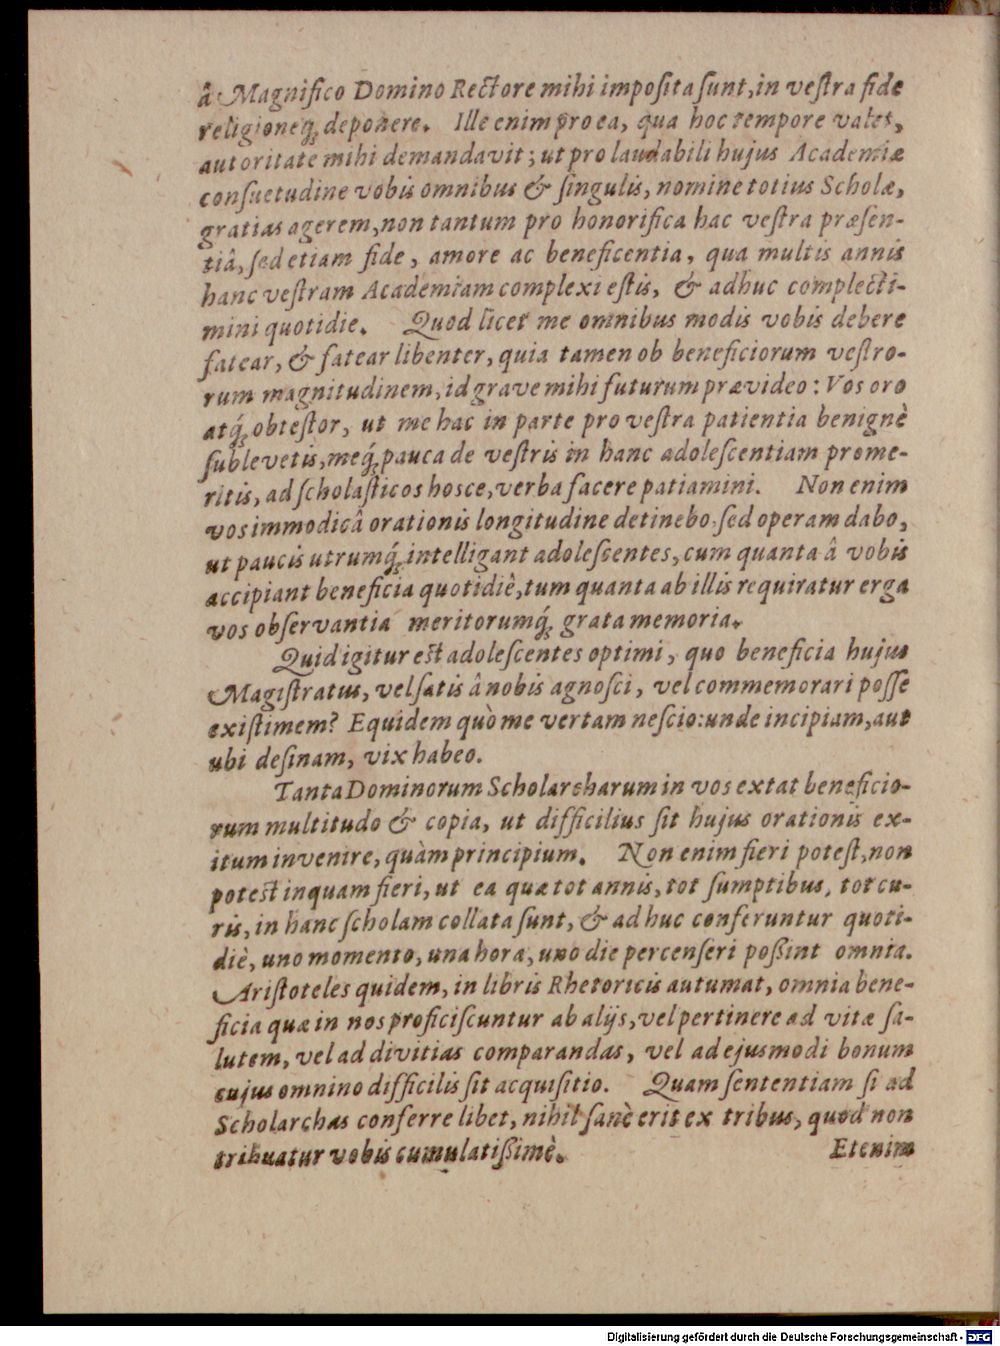 â Magnifico Domino Rectore mihi imposita sunt, in vestra fide
religioneq́; deponere. Ille enim pro ea, qua hoc tempore valet,
autoritate mihi demandavit; ut pro laudabili hujus Academiæ
consuetudine vobis omnibus & singulis, nomine totius Scholæ,
gratias agerem, non tantum pro honorifica hac vestra præsen-
tiâ, sed etiam fide, amore ac beneficentia, qua multis annis
hanc vestram Academiam complexi estis, & adhuc complecti-
mini quotidie. Quod licet me omnibus modis vobis debere
fatear, & fatear libenter, quia tamen ob beneficiorum vestro-
rum magnitudinem, id grave mihi futurum prævideo: Vos oro
atq́; obtestor, ut me hac in parte pro vestra patientia benignè
sublevetis, meq́; pauca de vestris in hanc adolescentiam prome-
ritis, ad scholasticos hosce, verba facere patiamini. Non enim
vos immodicâ orationis longitudine detinebo, sed operam dabo,
ut paucis utrumq́; intelligant adolescentes, cum quanta â vobis
accipiant beneficia quotidiè, tum quanta ab illis requiratur erga
vos observantia meritorumq́; grata memoria.
Quid igitur est adolescentes optimi, quo beneficia hujus
Magistratus, vel satis â nobis agnosci, vel commemorari posse
existimem? Equidem quò me vertam nescio: unde incipiam, aut
ubi desinam, vix habeo.
Tanta Dominorum Scholarcharum in vos extat beneficio-
rum multitudo & copia, ut difficilius sit hujus orationis ex-
itum invenire, quàm principium. Non enim fieri potest, non
potest inquam fieri, ut ea quæ tot annis, tot sumptibus, tot cu-
ris, in hanc scholam collata sunt, & adhuc conferuntur quoti-
diè, uno momento, una hora, uno die percenseri poßint omnia.
Aristoteles quidem, in libris Rhetoricis autumat, omnia bene-
ficia quæ in nos proficiscuntur ab alijs, vel pertinere ad vitæ sa-
lutem, vel ad divitias comparandas, vel ad ejusmodi bonum
cujus omnino difficilis sit acquisitio. Quam sententiam si ad
Scholarchas conferre libet, nihil sanè erit ex tribus, quod non
tribuatur vobis cumulatißimè.
Etenim
Digitalisierung gefördert durch die Deutsche Forschungsgemeinschaft - DFG